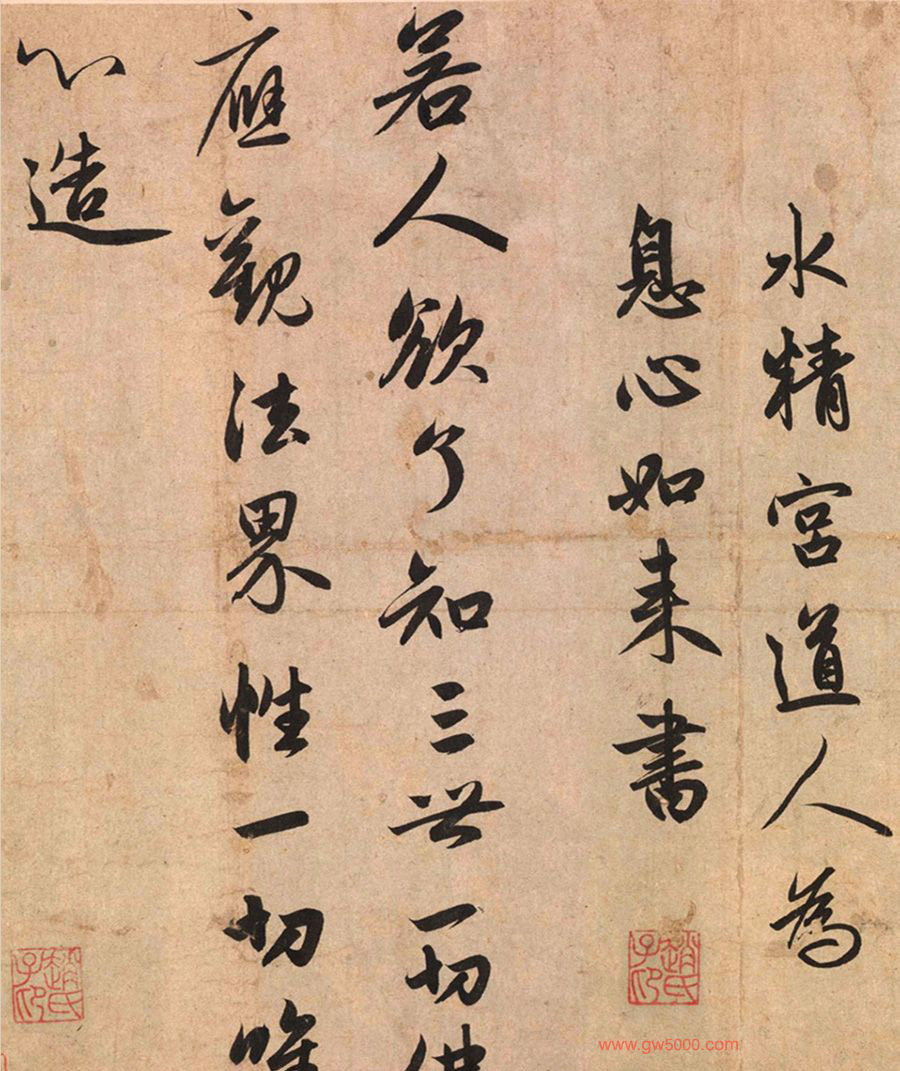 水精宮道人為
息心如来書
趙氏子昂
若人欲了知三世一切佛
應觀法界性一切唯
心造
趙氏子昂
www.gw5000.com